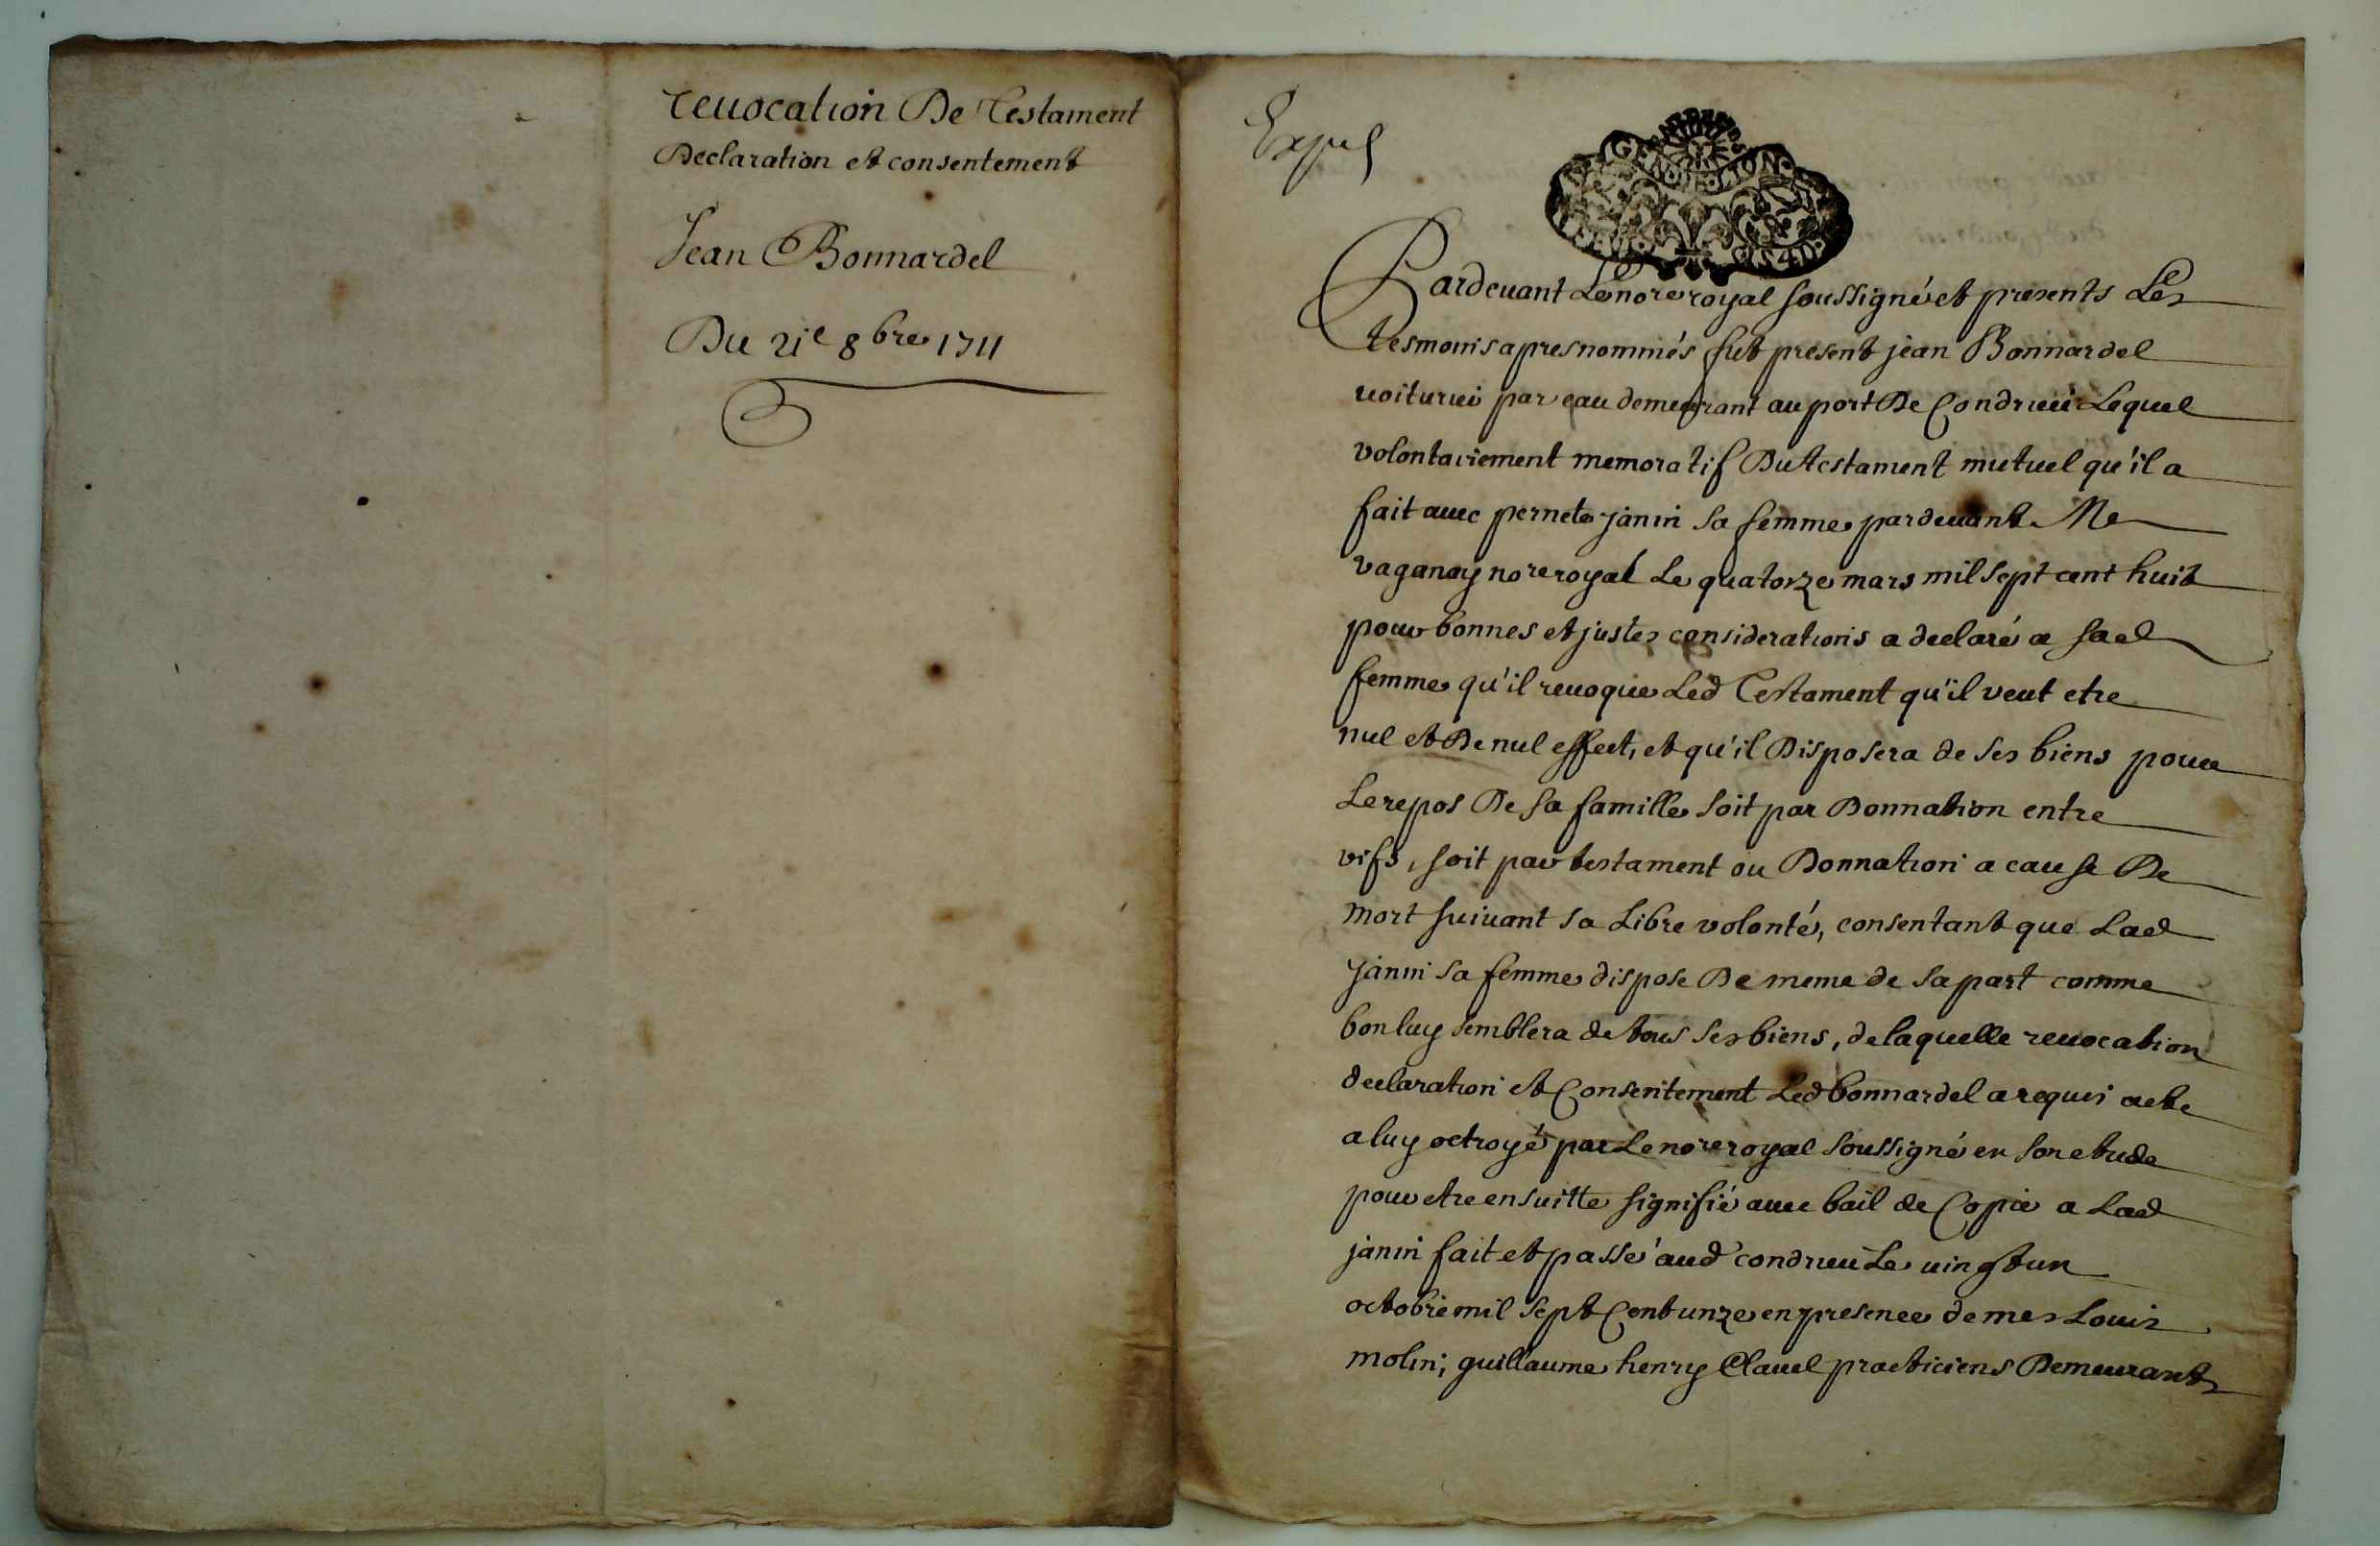 revocation De Testament
Declaration et consentement
Jean Bonnardel
Du 21e 8bre 1711
Expié
GENERALITE
DE LYON
Pardevant Le nore royal soussigné et presents Les
tesmoins apres nommés fut present jean Bonnardel
voiturier par eau demeurant au port De Condrieu Lequel
volontairement memoratif Du testament mutuel qu'il a
fait avec pernete janin sa femme pardevant Me
vaganay nore royal Le quatorze mars mil sept cent huit
pour bonnes et justes considerations a declaré a sad
femme qu'il revoque Led Testament qu'il veut etre
nul et De nul effect, et qu'il Disposera de ses biens pour
Le repos De sa famille soit par Donnation entre
vifs, soit par testament ou Donnation a cause De
mort suivant sa Libre volonté, consentant que Lad
janin sa femme dispose De meme de sa part comme
bon luy semblera de tous ses biens, de laquelle revocation
declaration et Consentement Led bonnardel a requis acte
a luy octroyé par Le nore royal soussigné en son etude
pour etre ensuitte signifié avec bail de Copie a Lad
janin fait et passé aud condrieu Le vingt un
octobre mil sept Cent unze en presence de mes Louis
molin; guillaume henry Clavel practiciens Demeurants